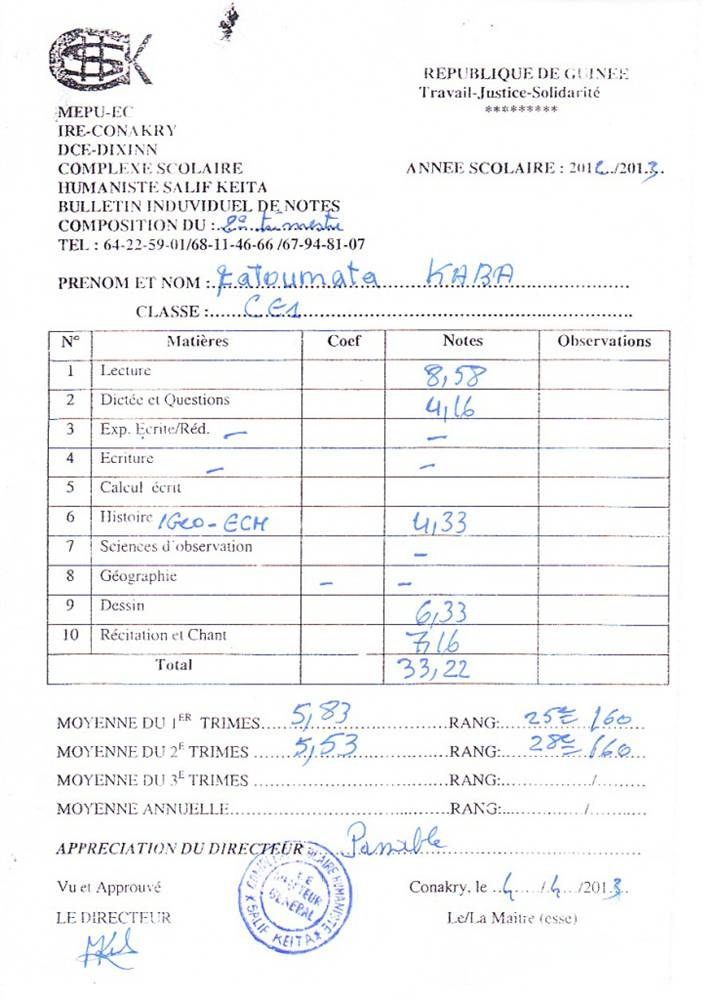 HSK
REPUBLIQUE DE GUINEE
Travail-Justice-Solidarité
*********
MEPU-EC
IRE-CONAKRY
DCE-DIXINN
COMPLEXE SCOLAIRE
HUMANISTE SALIF KEITA
ANNEE SCOLAIRE : 2012/2013.
BULLETIN INDUVIDUEL DE NOTES
COMPOSITION DU : 2e trimestre
TEL : 64-22-59-01/68-11-46-66 /67-94-81-07
PRENOM ET NOM : Fatoumata KABA
CLASSE : CE1
N° Matières Coef Notes Observations
1 Lecture 8,58
2 Dictée et Questions 4,16
3 Exp. Ecrite/Réd. — —
4 Ecriture — —
5 Calcul écrit
6 Histoire /Geo - ECM 4,33
7 Sciences d'observation —
8 Géographie — —
9 Dessin 6,33
10 Récitation et Chant 7,16
Total 33,22
MOYENNE DU 1ER TRIMES 5,83 RANG: 25e /60
MOYENNE DU 2E TRIMES 5,53 RANG: 28e /60
MOYENNE DU 3E TRIMES RANG: /
MOYENNE ANNUELLE RANG: /
APPRECIATION DU DIRECTEUR : Passable
Vu et Approuvé
Conakry, le 4 / 4 /2013.
LE DIRECTEUR
Le/La Maitre (esse)
COMPLEXE SCOLAIRE HUMANISTE
SALIF KEITA
LE
DIRECTEUR
GENERAL